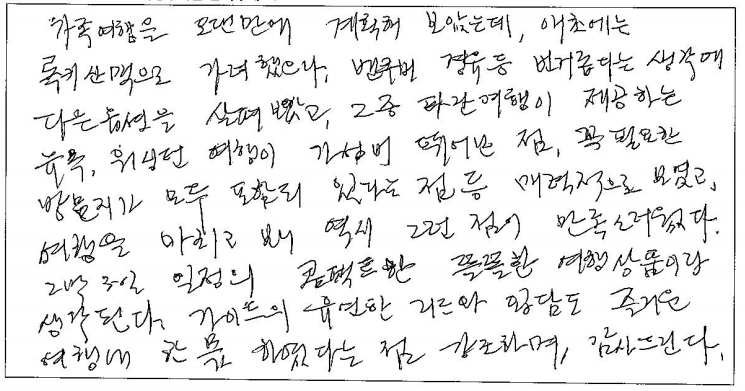 가족여행을 오랜만에 계획해 보았는데, 애초에는
록키산맥으로 가려했으나, 밴쿠버 경유등 번거롭다는 생각에
다른 옵션을 살펴 봤고, 그중 파란여행이 제공하는
뉴욕, 워싱턴 여행이 가성비 뛰어난 점, 꼭 필요한
방문지가 모두 포함되 있다는 점등 매력적으로 보였고,
여행을 마치고 보니 역시 그런 점이 만족스러웠다.
2박 3일 일정의 콤팩트한 똘똘한 여행상품이랑
생각된다. 가이드의 유연한 리드와 입담도 즐거운
여행에 한 몫 하였다는 점 강조하며, 감사드린다.